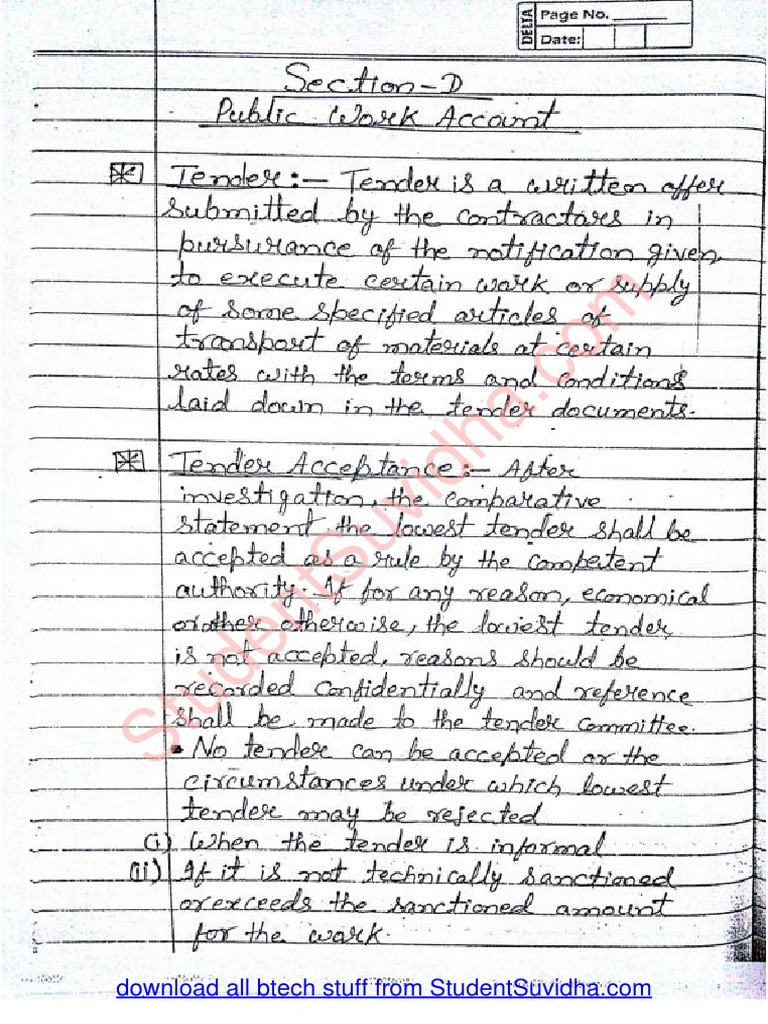 DELTA
Page No.
Date:
Section-D
Public Work Account
Tender:- Tender is a written offer
submitted by the contractors in
pursurance of the notification given
to execute certain work or supply
of some specified articles of
transport of materials at certain
rates with the terms and conditions
laid down in the tender documents.
Tender Acceptance:- After
investigation, the comparative
statement the lowest tender shall be
accepted as a rule by the competent
authority. If for any reason, economical
or other otherwise, the lowest tender
is not accepted, reasons should be
recorded confidentially and reference
shall be made to the tender committee.
• No tender can be accepted or the
circumstances under which lowest
tender may be rejected
(i) When the tender is informal
(ii) If it is not technically sanctioned
or exceeds the sanctioned amount
for the work.
StudentSuvidha.com
download all btech stuff from StudentSuvidha.com